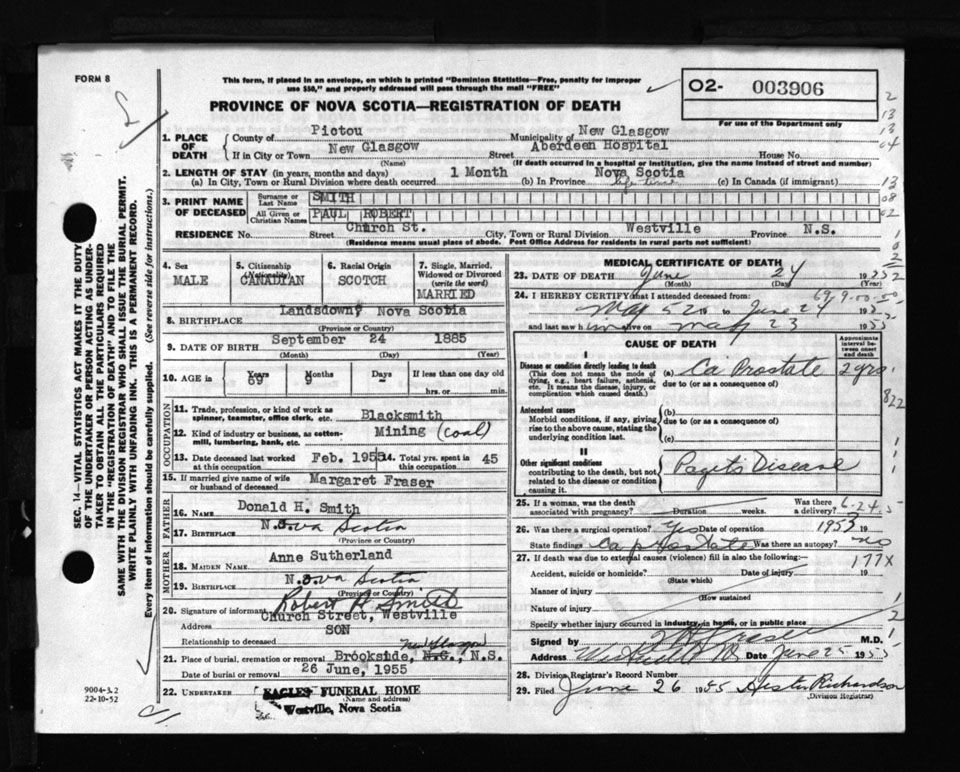 FORM 8
This form, if placed in an envelope, on which is printed "Dominion Statistics—Free, penalty for improper
use $50," and properly addressed will pass through the mail "FREE"
O2- 003906
For use of the Department only
PROVINCE OF NOVA SCOTIA—REGISTRATION OF DEATH
1. PLACE OF DEATH
County of Pictou Municipality of New Glasgow
If in City or Town New Glasgow Street Aberdeen Hospital House No.
(Name) (If death occurred in a hospital or institution, give the name instead of street and number)
2. LENGTH OF STAY (in years, months and days) 1 Month Nova Scotia
(a) In City, Town or Rural Division where death occurred (b) In Province life time (c) In Canada (if immigrant)
3. PRINT NAME OF DECEASED
Surname or Last Name SMITH
All Given or Christian Names PAUL ROBERT
RESIDENCE No. Street Church St. City, Town or Rural Division Westville Province N.S.
(Residence means usual place of abode. Post Office Address for residents in rural parts not sufficient)
4. Sex MALE
5. Citizenship (Nationality) CANADIAN
6. Racial Origin SCOTCH
7. Single, Married, Widowed or Divorced (write the word) MARRIED
8. BIRTHPLACE Landsdown, Nova Scotia
(Province or Country)
9. DATE OF BIRTH September 24 1885
(Month) (Day) (Year)
10. AGE in Years 69 Months 9 Days - If less than one day old
hrs. or min.
OCCUPATION
11. Trade, profession, or kind of work as spinner, teamster, office clerk, etc. Blacksmith
12. Kind of industry or business, as cotton-mill, lumbering, bank, etc. Mining (coal)
13. Date deceased last worked at this occupation Feb. 1955 14. Total yrs. spent in this occupation 45
15. If married give name of wife or husband of deceased Margaret Fraser
FATHER
16. Name Donald H. Smith
17. Birthplace Nova Scotia
(Province or Country)
MOTHER
18. MAIDEN NAME Anne Sutherland
19. BIRTHPLACE Nova Scotia
(Province or Country)
20. Signature of informant Robert H Smith
Address Church Street, Westville
Relationship to deceased SON
21. Place of burial, cremation or removal Brookside, N.G., New Glasgow N.S.
Date of burial or removal 26 June, 1955
22. UNDERTAKER EAGLES FUNERAL HOME
(Name and address)
Westville, Nova Scotia
MEDICAL CERTIFICATE OF DEATH
23. DATE OF DEATH June 24 1955
(Month) (Day)
24. I HEREBY CERTIFY that I attended deceased from:
May 52 19 to June 24 195
and last saw him alive on May 23 1955
CAUSE OF DEATH
Approximate interval between onset and death
I
Disease or condition directly leading to death
(This does not mean the mode of dying, e.g., heart failure, asthenia, etc. It means the disease, injury, or complication which caused death.)
(a) Ca Prostate 2 yrs
due to (or as a consequence of)
Antecedent causes
Morbid conditions, if any, giving rise to the above cause, stating the underlying condition last.
(b)
due to (or as a consequence of)
(c)
II
Other significant conditions
contributing to the death, but not related to the disease or condition causing it.
Pagets Disease
25. If a woman, was the death associated with pregnancy? Duration weeks Was there a delivery?
26. Was there a surgical operation? Yes Date of operation 1953 19
State findings Ca prostate Was there an autopsy? no
27. If death was due to external causes (violence) fill in also the following:— 177X
Accident, suicide or homicide? Date of injury 19
(State which)
Manner of injury
(How sustained
Nature of injury
Specify whether injury occurred in industry, in home, or in public place
Signed by Fraser M.D.
Address Westville NS Date June 25 1955
28. Division Registrar's Record Number
29. Filed June 26 1955 Hester Richardson
(Division Registrar)
SEC. 14—VITAL STATISTICS ACT MAKES IT THE DUTY
OF THE UNDERTAKER OR PERSON ACTING AS UNDER-
TAKER TO OBTAIN ALL THE PARTICULARS REQUIRED
IN THE "REGISTRATION OF DEATH" AND TO FILE THE
SAME WITH THE DIVISION REGISTRAR WHO SHALL ISSUE THE BURIAL PERMIT.
WRITE PLAINLY WITH UNFADING INK. THIS IS A PERMANENT RECORD.
Every item of information should be carefully supplied. (See reverse side for instructions.)
9004-3.2
22-10-52